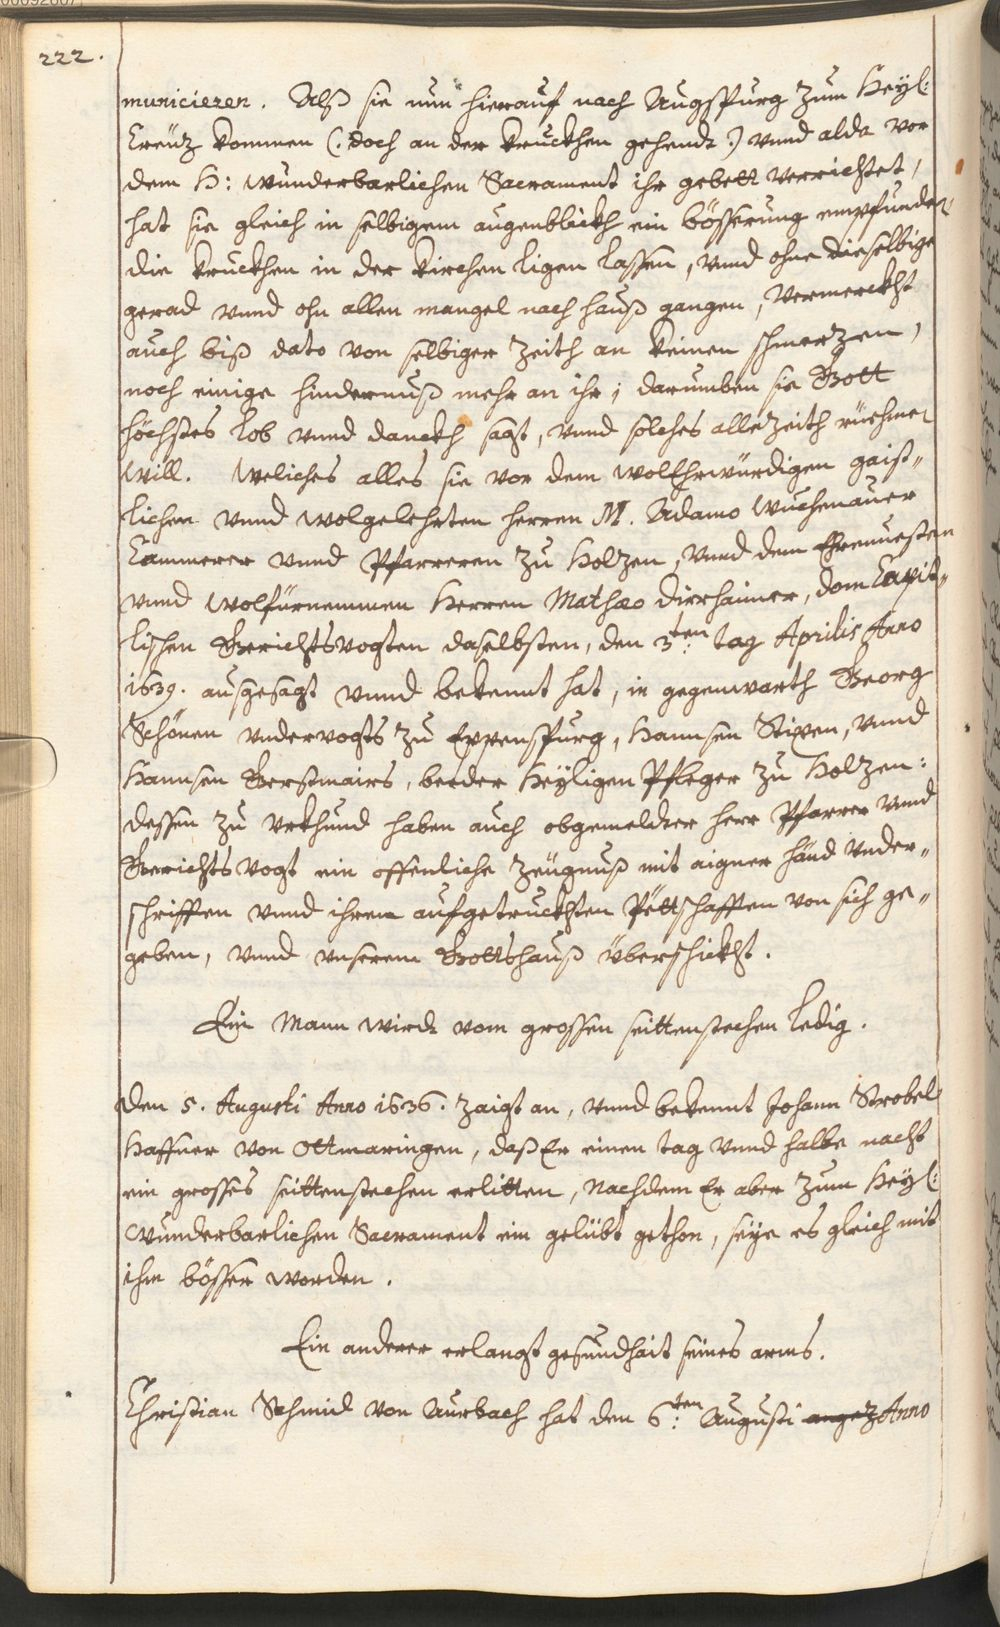 222.
municieren. Alß sie nun hierauf nach Augspurg zum Heyl:
Creüz kommen (: doch an der kruckhen gehendt :) vnnd alda vor
dem H: wunderbarlichen Sacrament ihr gebett verrichtet,
hat sie gleich in selbigem augenblickh ein bösserung empfunden,
die kruckhen in der kirchen ligen lassen, vnnd ohne dieselbige
gerad vnnd ohn allen mangel nach hauß gangen, vermerckht
auch biß dato von selbiger zeith an keinen schmerzen,
noch einige hindernuß mehr an ihr, darumben sie Gott
höchstes lob vnnd danckh sagt, vnnd solches allezeith rüehmen
will. Weliches alles sie vor dem wolEhrwürdigen gaist„
lichen vnnd wolgelehrten herren M. Adamo Wuchenauer
Cammerer vnnd Pfarreren zu Holzen, vnnd dem Ehrnuesten
vnnd wolfürnemmen Herren Mathæo Dirrhaimer, dom Capit„
lischen Gerichtsvogten daselbsten, den 3ten: tag Aprilis Anno
1639. ausgesagt vnnd bekennt hat, in gegenwarth Georg
Schönen vndervogts zu Eppenspurg, Hannsen Stixen, vnnd
Hannsen Gerstmairs, beeder Heyligen Pfleger zu Holzen:
dessen zu vrkhund haben auch obgemeldter herr Pfarrer vnnd
Gerichts Vogt ein offenliche zeügnuß mit aigner händ vnder„
schrifften vnnd ihren aufgetruckhten Pëttschafften von sich ge„
geben, vnnd vnserem Gottshauß überschickht.
Ein Mann wirdt vom grossen seittenstechen ledig.
Den 5. Augusti Anno 1636. zaigt an, vnnd bekennt Johann Strobel
Haffner von Ottmaringen, daß Er einen tag vnnd halbe nacht
ein grosses seittenstechen erlitten, Nachdem Er aber zum Heyl:
Wunderbarlichen Sacrament ein gelübt gethon, seye es gleich mit
ihm bösser worden.
Ein anderer erlangt gesundhait seines arms.
Christian Schmid von Aurbach hat den 6ten: Augusti angez Anno